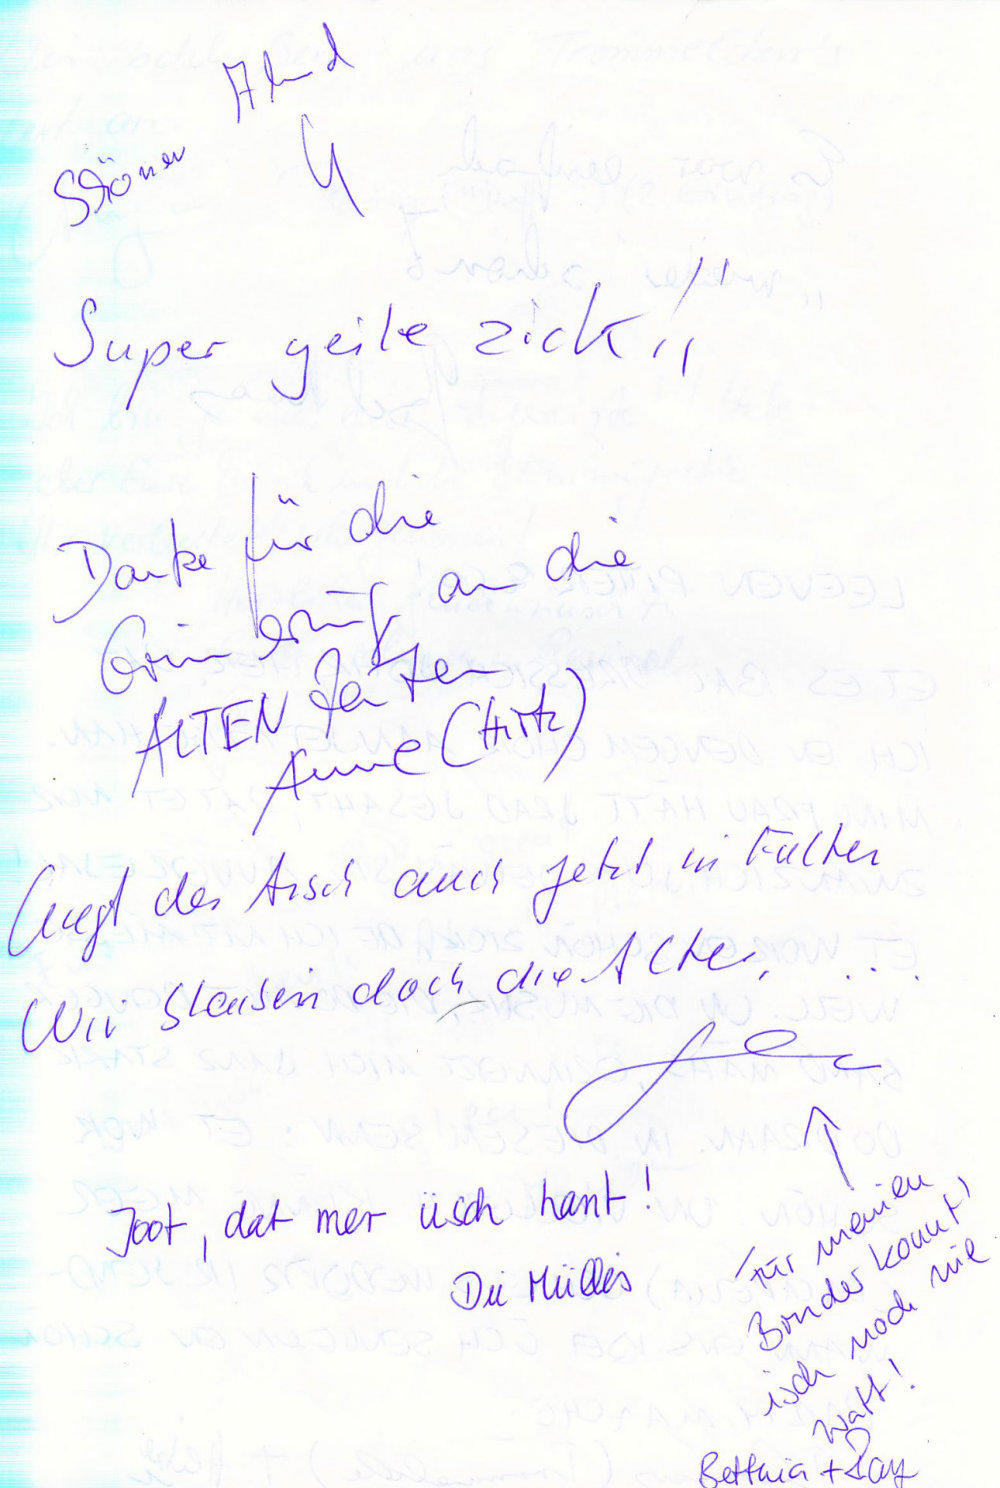 Schöner Abend
Super geile Zick,,"
Danke für die
Erinnerung an die
ALTEN Zeiten
Anne (Hirtz)
liegt der Arsch auch jetzt in Falten
Wir bleiben doch die Alten, ...
Joot, dat mer üsch hant!
Die Müllis
Für meinen
Bruder konnt'
isch noch nie
watt!
Bettina + Ray